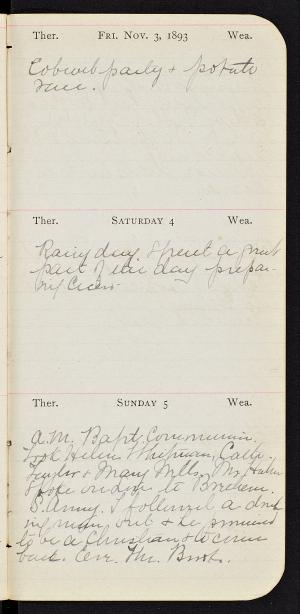 Ther. FRI. NOV. 3, 1893 Wea.
Cobweb party & potato
race.
Ther. SATURDAY 4 Wea.
Rainy day. Spent a great
part of the day prepar-
ing Cicero
Ther. SUNDAY 5 Wea.
A.M. Bapt. Communion.
Took Helen Chapman, Cath.
Taylor & Mary Mills.
spoke on to
S. Army. I followed a drink
ing man out & he promised
to be a Christian & to come
back. Eve. Mr.